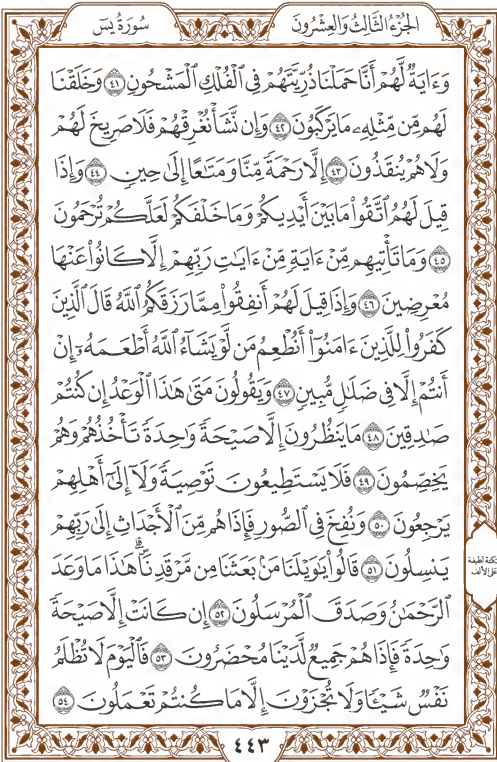 الجُزْءُ الثَّالِثُ وَالعِشْرُونَ
سُورَةُ يسٓ
وَءَايَةٌ لَّهُمْ أَنَّا حَمَلْنَا ذُرِّيَّتَهُمْ فِي ٱلْفُلْكِ ٱلْمَشْحُونِ ٤١ وَخَلَقْنَا
لَهُم مِّن مِّثْلِهِۦ مَا يَرْكَبُونَ ٤٢ وَإِن نَّشَأْ نُغْرِقْهُمْ فَلَا صَرِيخَ لَهُمْ
وَلَا هُمْ يُنقَذُونَ ٤٣ إِلَّا رَحْمَةً مِّنَّا وَمَتَٰعًا إِلَىٰ حِينٍ ٤٤ وَإِذَا
قِيلَ لَهُمُ ٱتَّقُوا۟ مَا بَيْنَ أَيْدِيكُمْ وَمَا خَلْفَكُمْ لَعَلَّكُمْ تُرْحَمُونَ
٤٥ وَمَا تَأْتِيهِم مِّنْ ءَايَةٍ مِّنْ ءَايَٰتِ رَبِّهِمْ إِلَّا كَانُوا۟ عَنْهَا
مُعْرِضِينَ ٤٦ وَإِذَا قِيلَ لَهُمْ أَنفِقُوا۟ مِمَّا رَزَقَكُمُ ٱللَّهُ قَالَ ٱلَّذِينَ
كَفَرُوا۟ لِلَّذِينَ ءَامَنُوٓا۟ أَنُطْعِمُ مَن لَّوْ يَشَآءُ ٱللَّهُ أَطْعَمَهُۥٓ إِنْ
أَنتُمْ إِلَّا فِي ضَلَٰلٍ مُّبِينٍ ٤٧ وَيَقُولُونَ مَتَىٰ هَٰذَا ٱلْوَعْدُ إِن كُنتُمْ
صَٰدِقِينَ ٤٨ مَا يَنظُرُونَ إِلَّا صَيْحَةً وَٰحِدَةً تَأْخُذُهُمْ وَهُمْ
يَخِصِّمُونَ ٤٩ فَلَا يَسْتَطِيعُونَ تَوْصِيَةً وَلَآ إِلَىٰٓ أَهْلِهِمْ
يَرْجِعُونَ ٥٠ وَنُفِخَ فِي ٱلصُّورِ فَإِذَا هُم مِّنَ ٱلْأَجْدَاثِ إِلَىٰ رَبِّهِمْ
يَنسِلُونَ ٥١ قَالُوا۟ يَٰوَيْلَنَا مَنۢ بَعَثَنَا مِن مَّرْقَدِنَا ۜ ۗ هَٰذَا مَا وَعَدَ
ٱلرَّحْمَٰنُ وَصَدَقَ ٱلْمُرْسَلُونَ ٥٢ إِن كَانَتْ إِلَّا صَيْحَةً
وَٰحِدَةً فَإِذَا هُمْ جَمِيعٌ لَّدَيْنَا مُحْضَرُونَ ٥٣ فَٱلْيَوْمَ لَا تُظْلَمُ
نَفْسٌ شَيْـًٔا وَلَا تُجْزَوْنَ إِلَّا مَا كُنتُمْ تَعْمَلُونَ ٥٤
سكتة لطيفة
على الألف
٤٤٣